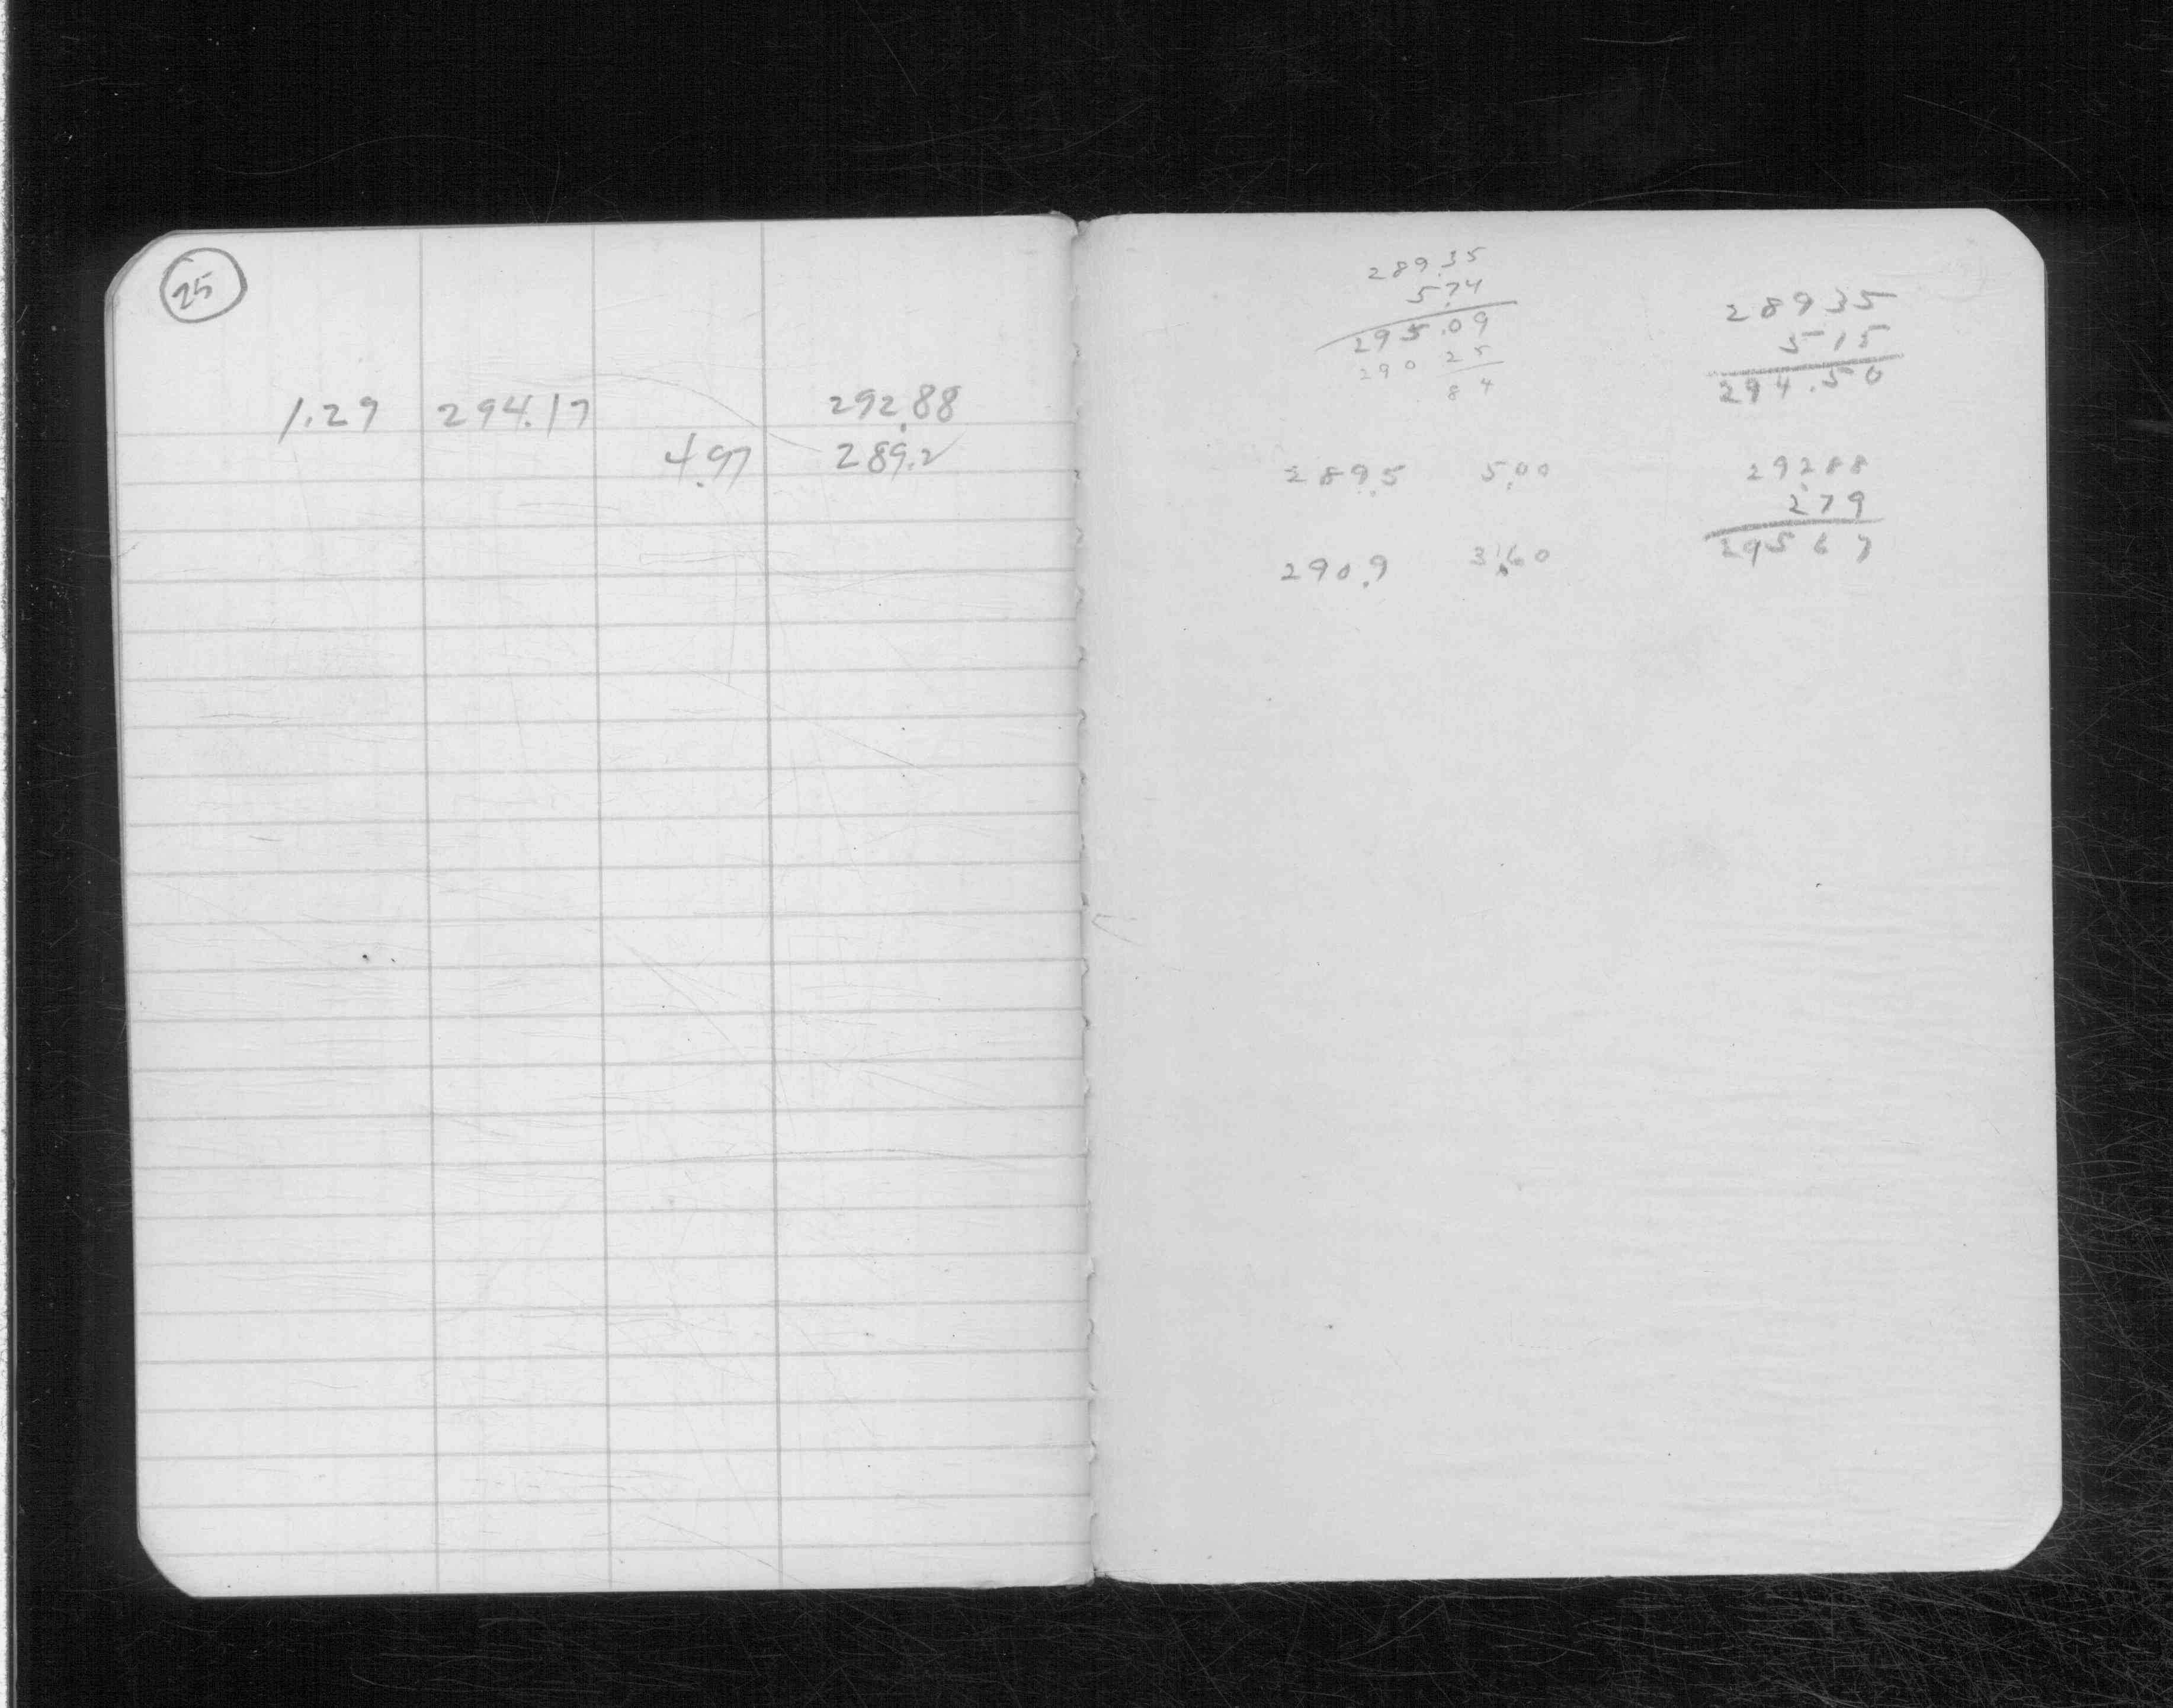 25
1.29 294.17 292.88
4.97 289.2
289.35
5.74
295.09
290 25
84
28935
515
294.50
289.5 5.00
290.9 3.60
292.88
279
29567